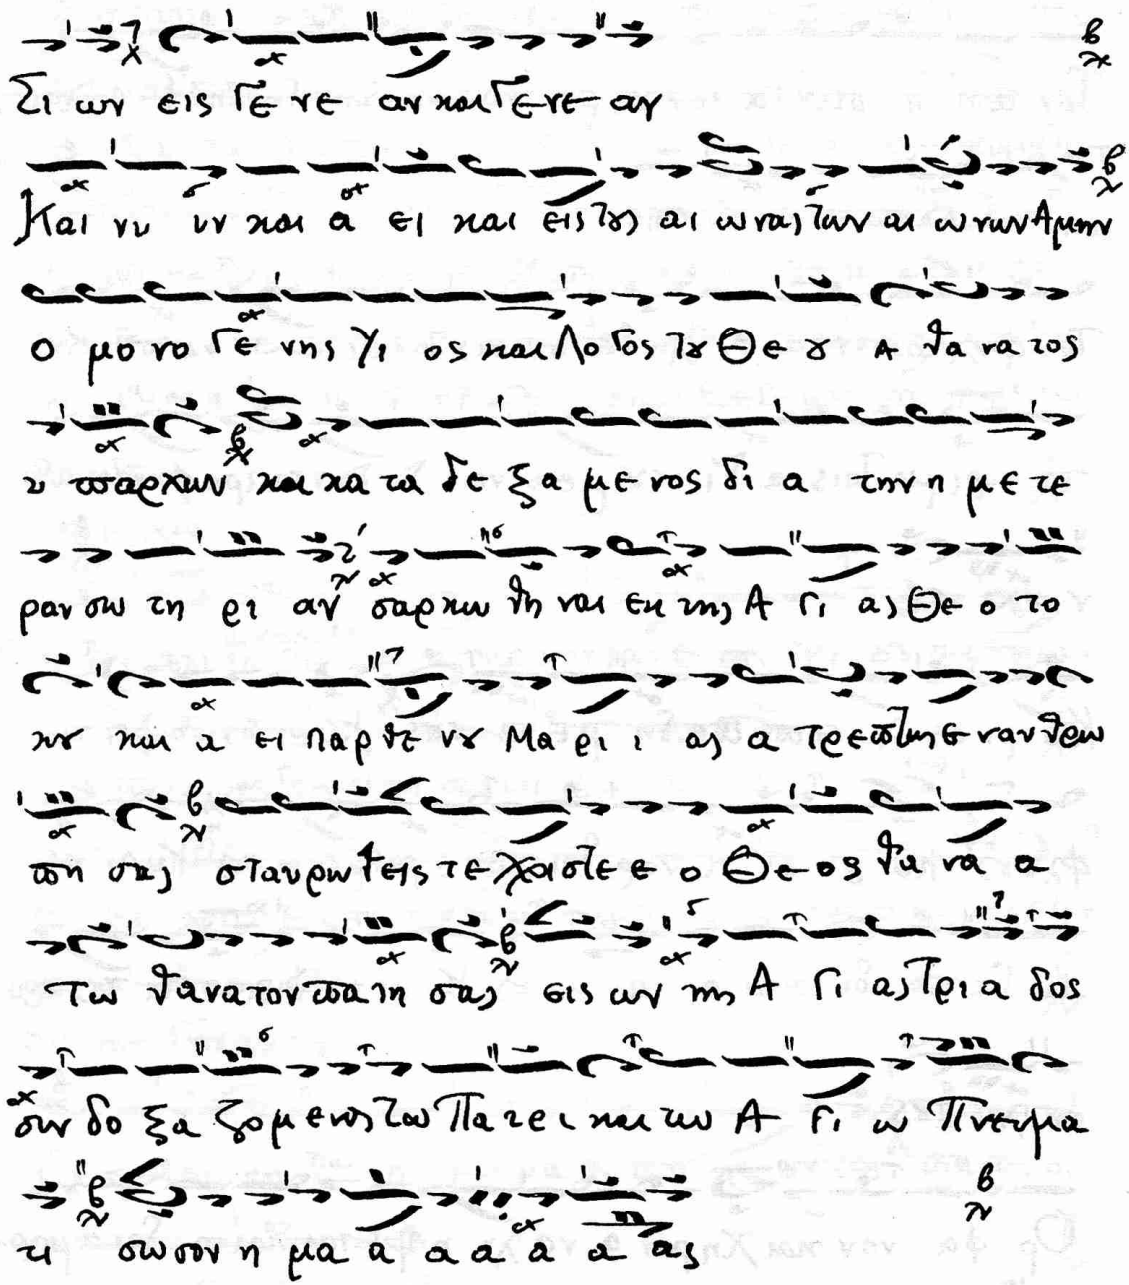 Σι ων εις Γε νε αν και Γε νε αν
Και νυ υν και α ει και εις τȣς αι ωνας των αι ωνων Αμην
Ο μο νο Γε νης Υι ος και Λο γος τȣ Θε ȣ Α θα να τος
υ παρχων και κα τα δε ξα με νος δι α την η με τε
ραν σω τη ρι αν σαρκω θη ναι εκ της Α Γι ας Θε ο το
κȣ και α ει παρ θε νȣ Μα ρι ι ας α τρεπτως ε ναν θρω
πη σας σταυρω θεις τε Χριστε ε ο Θε ος θα να α
τω θανατον πατη σας εις ων της Α Γι ας Τρι α δος
συν δο ξα ζο με νος τω Πα τρι και τω Α Γι ω Πνευμα
τι σωσον η μα α α α α α ας